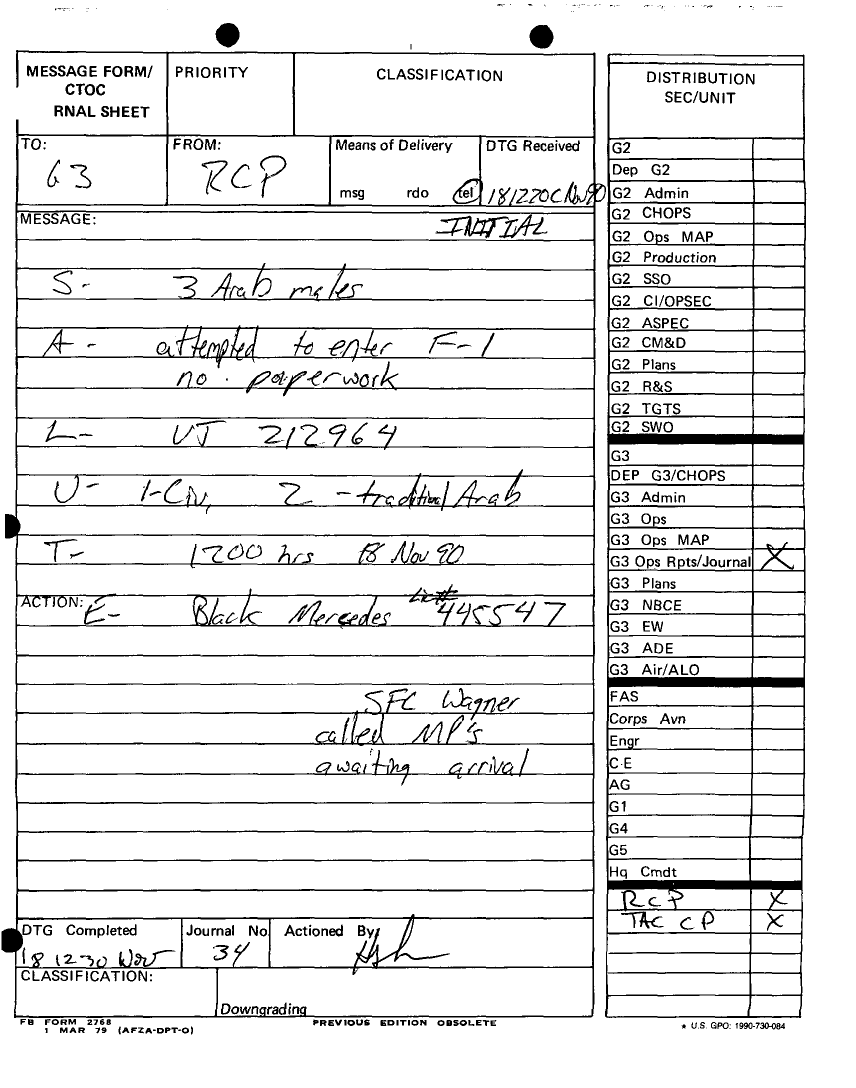 MESSAGE FORM/
CTOC
RNAL SHEET
PRIORITY
CLASSIFICATION
TO:
G3
FROM:
RCP
Means of Delivery
msg rdo tel
DTG Received
181220C Nov 90
MESSAGE:
INITIAL
S- 3 Arab males
A- attempted to enter F-1
no paperwork
L- UT 212964
U- 1-Civ, 2 -traditional Arab
T- 1200 hrs 18 Nov 90
ACTION: E- Black Mercedes Lic# 445547
SFC Wagner
called MP's
awaiting arrival
DTG Completed
18 1230 Nov
Journal No.
34
Actioned By
CLASSIFICATION:
Downgrading
FB FORM 2768
1 MAR 79 (AFZA-DPT-O)
PREVIOUS EDITION OBSOLETE
DISTRIBUTION
SEC/UNIT
G2
Dep G2
G2 Admin
G2 CHOPS
G2 Ops MAP
G2 Production
G2 SSO
G2 CI/OPSEC
G2 ASPEC
G2 CM&D
G2 Plans
G2 R&S
G2 TGTS
G2 SWO
G3
DEP G3/CHOPS
G3 Admin
G3 Ops
G3 Ops MAP
G3 Ops Rpts/Journal X
G3 Plans
G3 NBCE
G3 EW
G3 ADE
G3 Air/ALO
FAS
Corps Avn
Engr
C-E
AG
G1
G4
G5
Hq Cmdt
RCP X
TAC CP X
* U.S. GPO: 1990-730-084